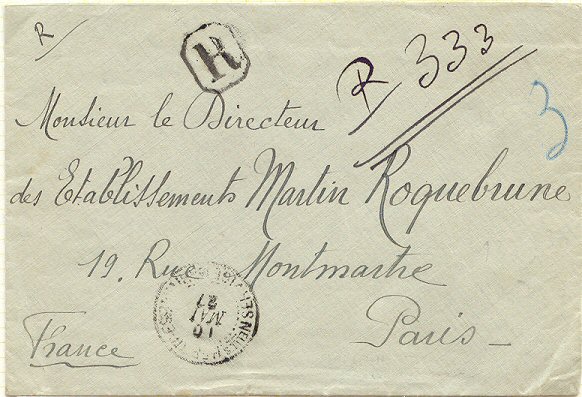 R
R
R 333
3
Monsieur le Directeur
des Etablissements Martin Roquebrune
19. Rue Montmartre
Paris
France
10
MAI
27